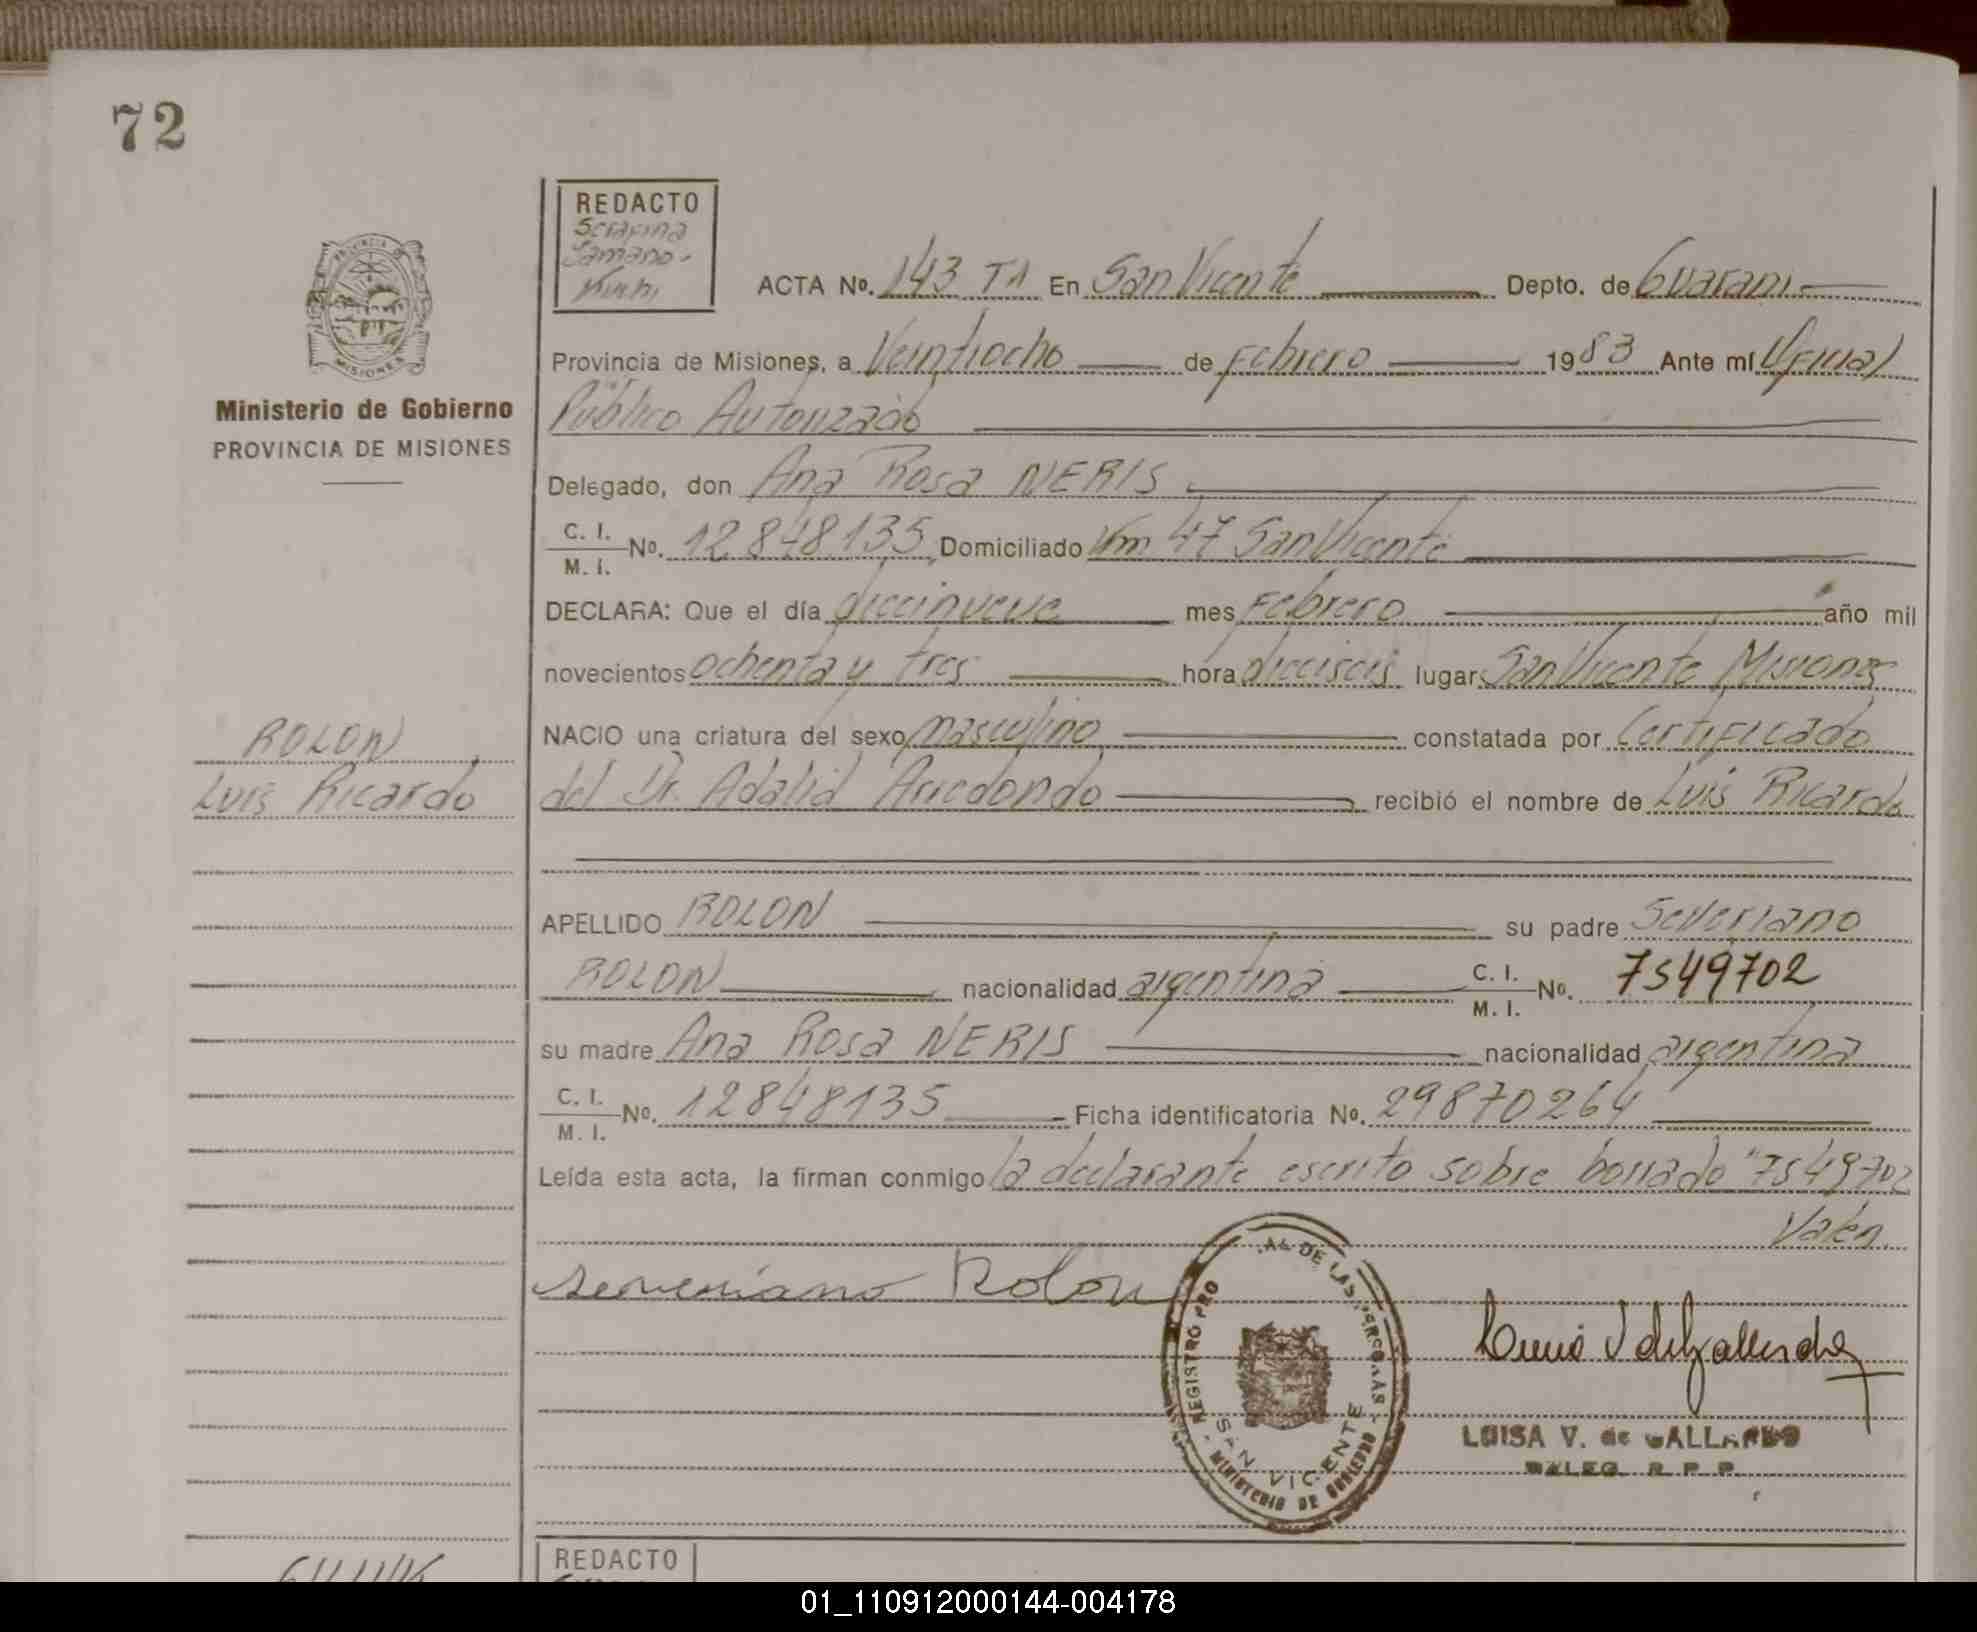 72
REDACTO
Serafina
ACTA No. 143 T1 En San Vicente Depto. de Guarani
Provincia de Misiones, a Veintiocho de Febrero 1983 Ante mí Oficial
Público Autorizado
PROVINCIA DE MISIONES
Ministerio de Gobierno
PROVINCIA DE MISIONES
Delegado, don Ana Rosa NERIS
C. I.
M. I. No. 12848135 Domiciliado Km 47 San Vicente
DECLARA: Que el día diecinueve mes Febrero año mil
novecientos ochenta y tres hora dieciseis lugar San Vicente Misiones
ROLON
Luis Ricardo
NACIO una criatura del sexo masculino constatada por Certificado
del Dr. Adalid Arredondo recibió el nombre de Luis Ricardo
APELLIDO ROLON su padre Severiano
ROLON nacionalidad argentina C. I. M. I. No. 7549702
su madre Ana Rosa NERIS nacionalidad argentina
C. I.
M. I. No. 12848135 Ficha identificatoria No. 29870264
Leída esta acta, la firman conmigo la declarante escrito sobre borrado "7549702
Valen
severiano Rolon
REGISTRO PRO AL DE LAS PERSONAS
SAN VICENTE
MINISTERIO DE GOBIERNO
LUISA V. de GALLARDO
DALEG. R. P. P.
REDACTO
01_110912000144-004178